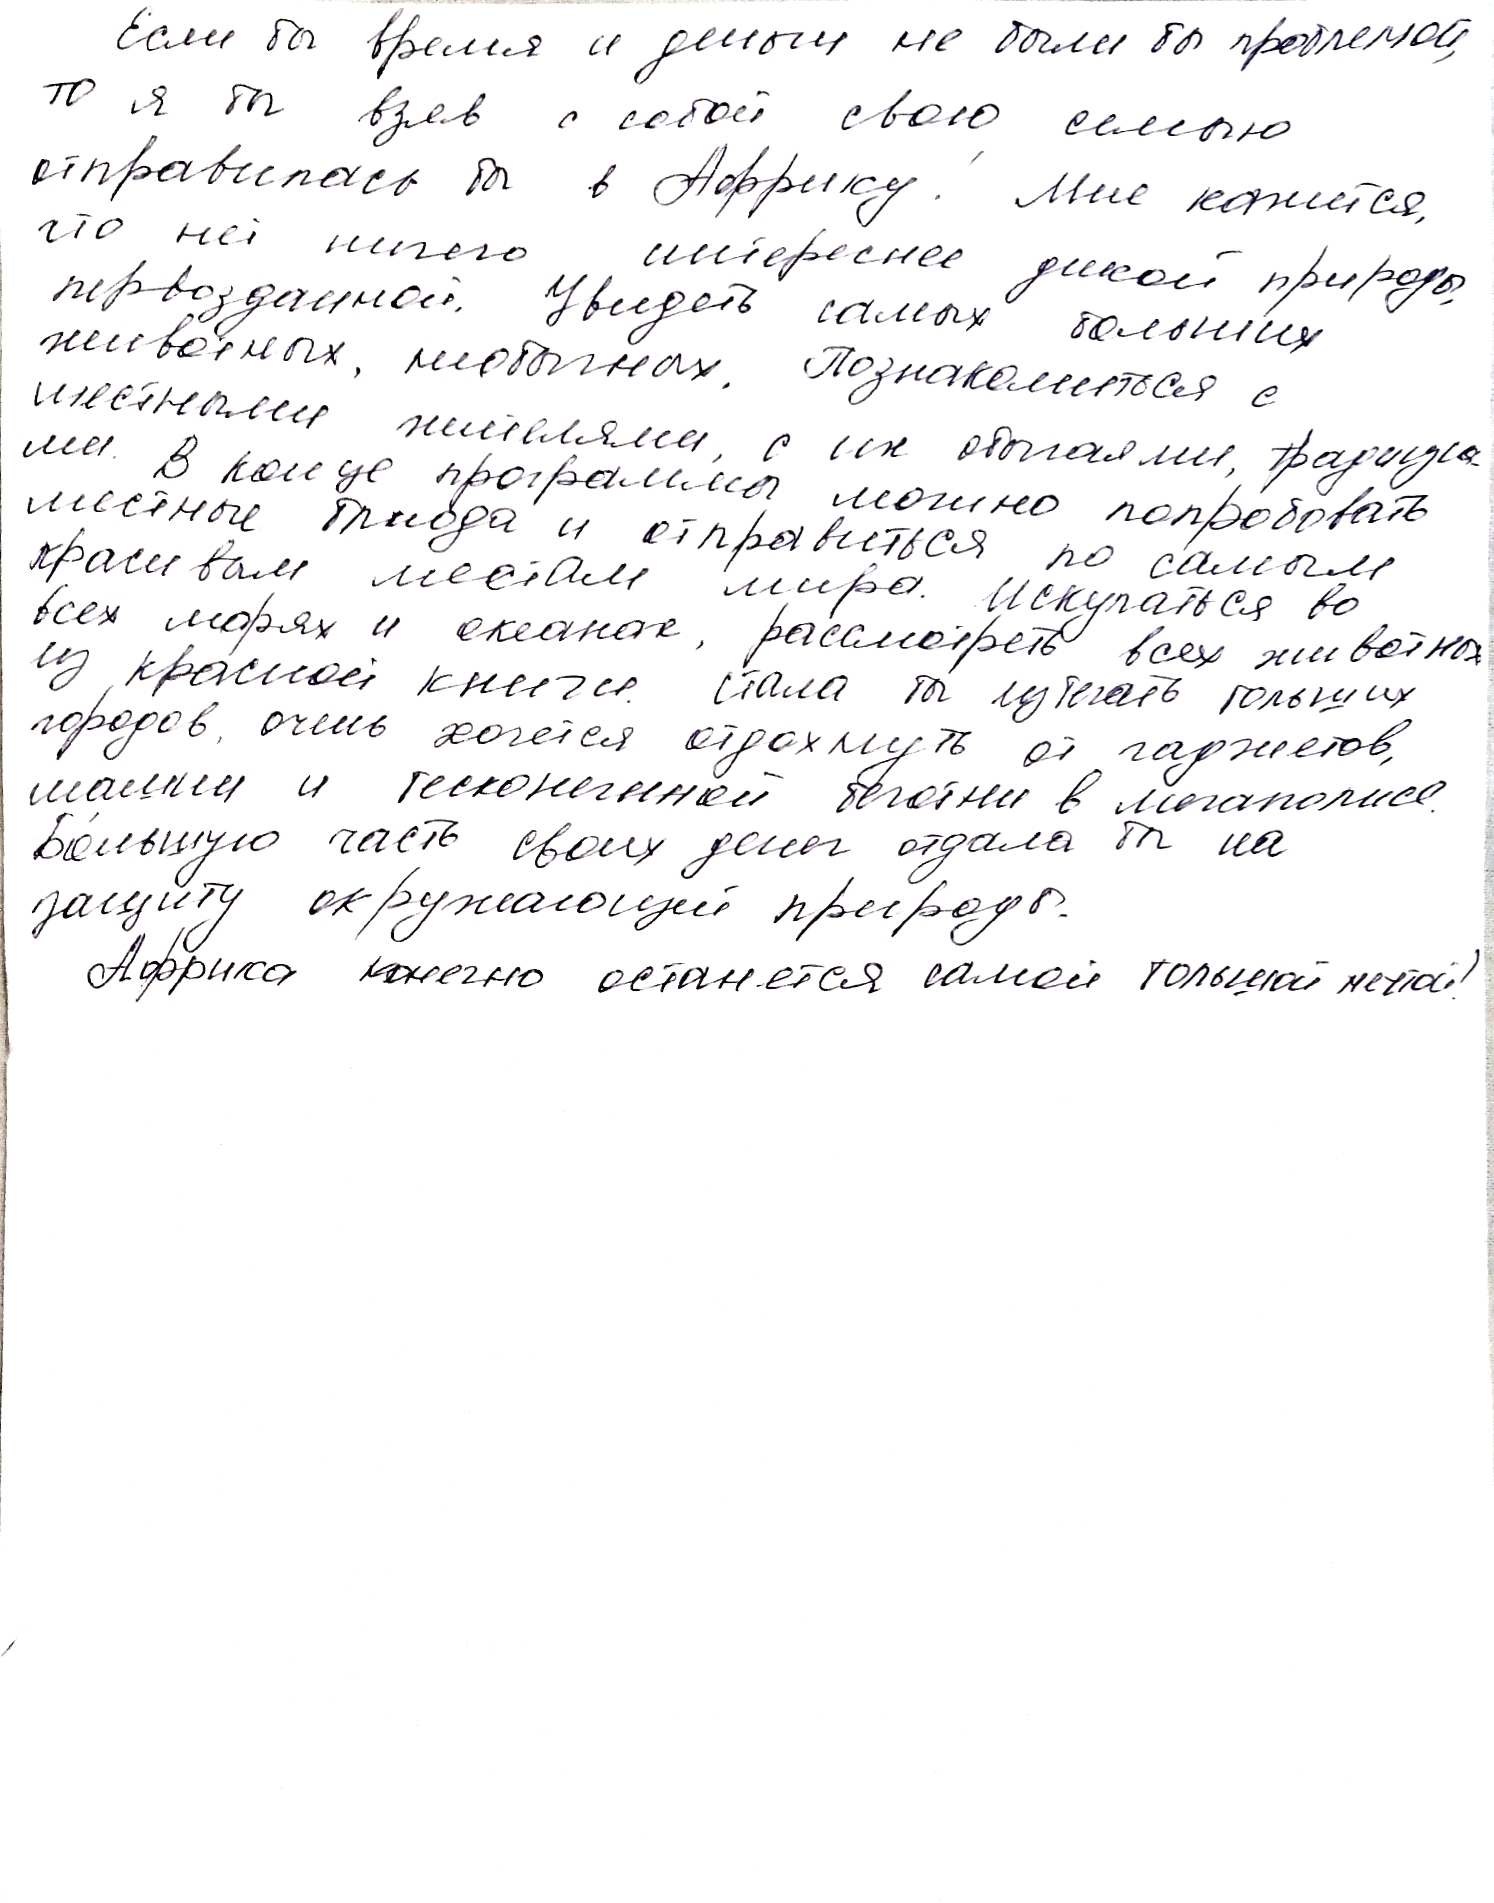 Если бы время и деньги не были бы проблемой,
то я бы взяв с собой свою семью
отправилась бы в Африку. Мне кажется,
что нет ничего интереснее дикой природы,
первозданной. Увидеть самых больших
животных, необычных. Познакомиться с
местными жителями, с их обычаями, традиция-
ми. В конце программы можно попробовать
местные блюда и отправиться по самым
красивым местам мира. Искупаться во
всех морях и океанах, рассмотреть всех животных
из красной книги. Стала бы избегать больших
городов, очень хочется отдохнуть от гаджетов,
машин и бесконечной беготни в мегаполисе.
Бо́льшую часть своих денег отдала бы на
защиту окружающей природы.
Африка конечно останется самой большой мечтой!